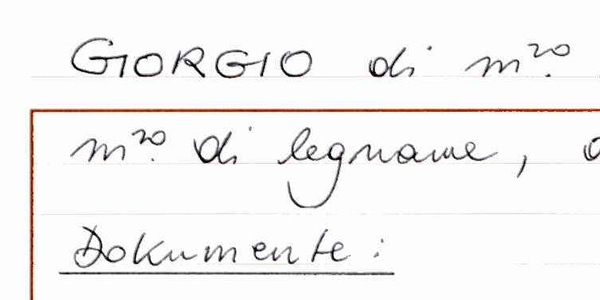 GIORGIO di m.ro
m.ro di legname,
Dokumente: